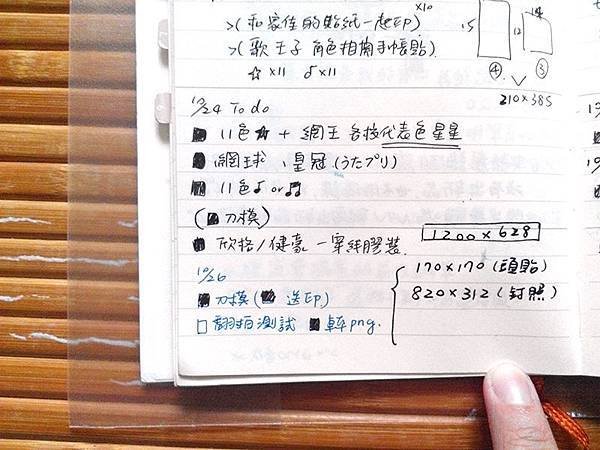 >(和家佳的貼紙一起印) x10
>(歌王子 角色相關手帳貼)
☆ x11 ♪ x11
15 12 14
④ ③
210×385
10/24 To do
■ 11色★ + 網王 各校代表色星星
■ 網球、皇冠(うたプリ)
■ 11色♪ or ♬
(■ 刀模)
■ 欣格/健豪 一穿線膠裝
1200×628
170×170 (頭貼)
820×312 (封照)
10/26
■ 刀模(■ 送印)
□ 翻拍測試 ■ 轉png.